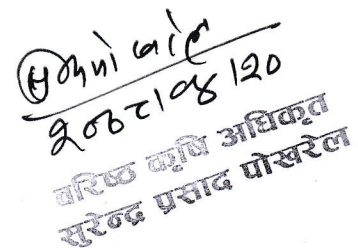 २०७९।७।२०
वरिष्ठ कृषि अधिकृत
सुरेन्द्र प्रसाद पोखरेल